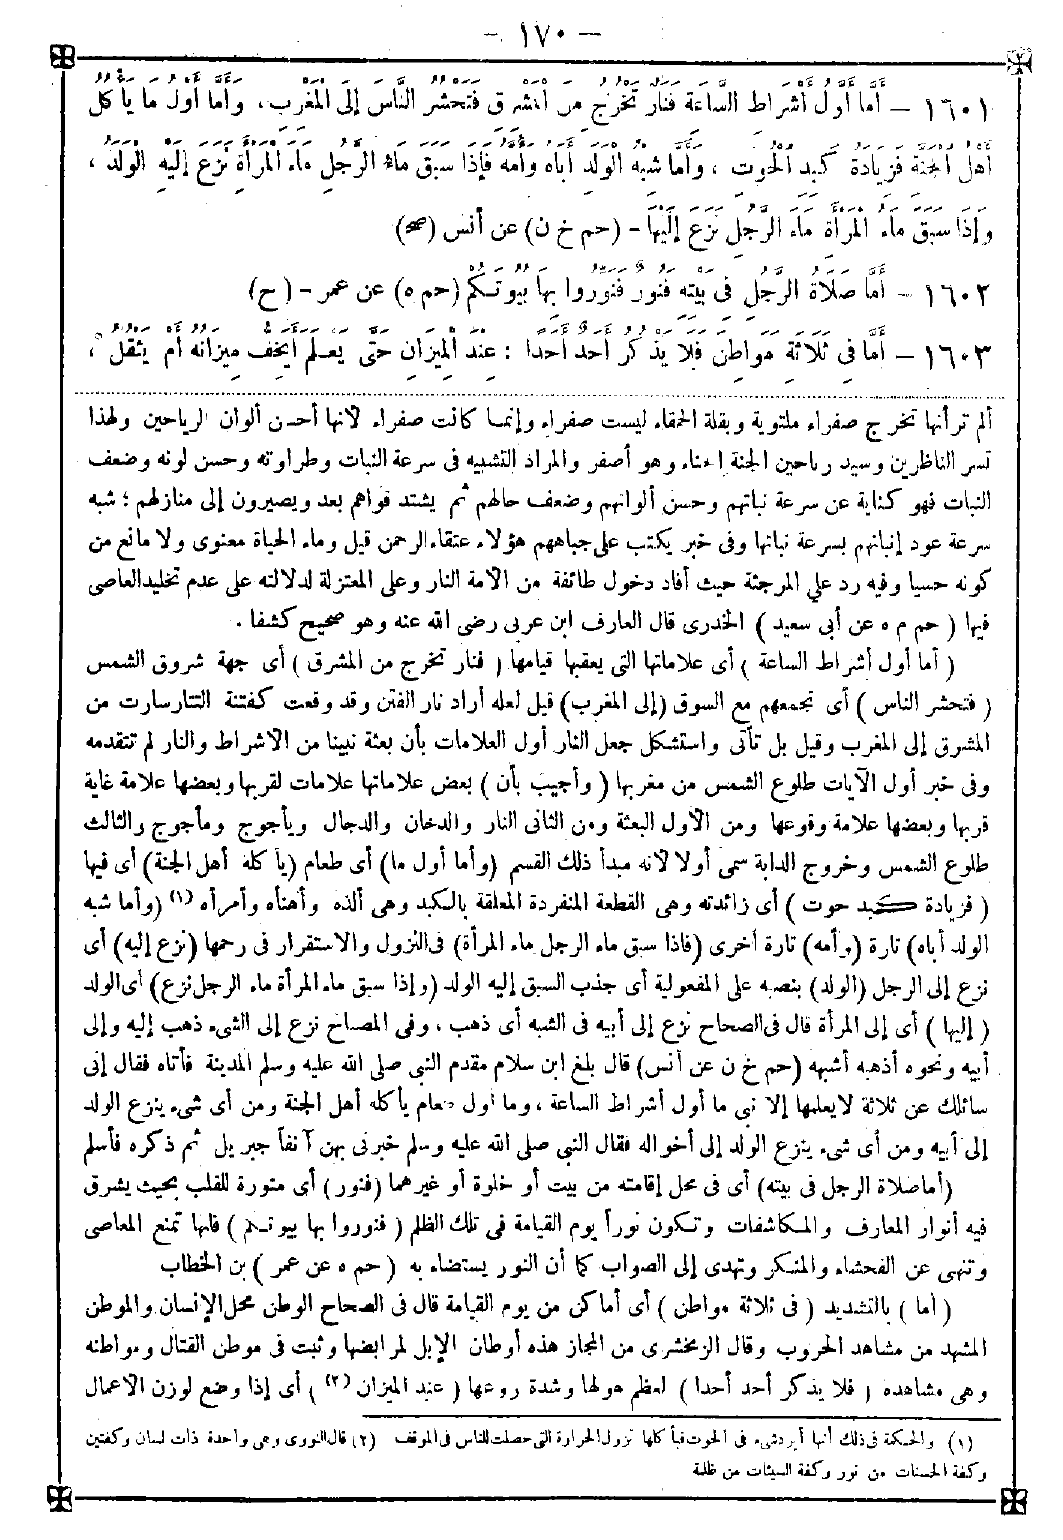 — ١٧٠ —
١٦٠١ — أَمَّا أَوَّلُ أَشْرَاطِ السَّاعَةِ فَنَارٌ تَخْرُجُ مِنَ الْمَشْرِقِ فَتَحْشُرُ النَّاسَ إِلَى الْمَغْرِبِ، وَأَمَّا أَوَّلُ مَا يَأْكُلُ
أَهْلُ الْجَنَّةِ فَزِيَادَةُ كَبِدِ الْحُوتِ، وَأَمَّا شِبْهُ الْوَلَدِ أَبَاهُ وَأُمَّهُ فَإِذَا سَبَقَ مَاءُ الرَّجُلِ مَاءَ الْمَرْأَةِ نَزَعَ إِلَيْهِ الْوَلَدُ،
وَإِذَا سَبَقَ مَاءُ الْمَرْأَةِ مَاءَ الرَّجُلِ نَزَعَ إِلَيْهَا - (حم خ ن) عن أنس (صح)
١٦٠٢ — أَمَّا صَلَاةُ الرَّجُلِ فِي بَيْتِهِ فَنُورٌ فَنَوِّرُوا بِهَا بُيُوتَكُمْ (حم ه) عن عمر - (ح)
١٦٠٣ — أَمَّا فِي ثَلَاثَةِ مَوَاطِنَ فَلَا يَذْكُرُ أَحَدٌ أَحَدًا: عِنْدَ الْمِيزَانِ حَتَّى يَعْلَمَ أَيَخِفُّ مِيزَانُهُ أَمْ يَثْقُلُ،
ألم ترأنها تخرج صفراء ملتوية وبقلة الحمقاء ليست صفراء وإنما كانت صفراء لأنها أحسن ألوان الرياحين ولهذا
تسر الناظرين وسيد رياحين الجنة الحناء وهو أصفر والمراد التشبيه فى سرعة النبات وطراوته وحسن لونه وضعف
النبات فهو كناية عن سرعة نباتهم وحسن ألوانهم وضعف حالهم ثم يشتد قواهم بعد ويصيرون إلى منازلهم ؛ شبه
سرعة عود إنباتهم بسرعة نباتها وفى خبر يكتب على جباههم هؤلاء عتقاء الرحمن قيل وماء الحياة معنوى ولا مانع من
كونه حسيا وفيه رد علي المرجئة حيث أفاد دخول طائفة من الأمة النار وعلى المعتزلة لدلالته على عدم تخليد العاصى
فيها ( حم م ه عن أبى سعيد ) الخدرى قال العارف ابن عربى رضى الله عنه وهو صحيح كشفا .
( أما أول أشراط الساعة ) أى علاماتها التى يعقبها قيامها ( فنار تخرج من المشرق ) أى جهة شروق الشمس
( فتحشر الناس ) أى تجمعهم مع السوق (إلى المغرب) قيل لعله أراد نار الفتن وقد وقعت كفتنة التتار سارت من
المشرق إلى المغرب وقيل بل تأتى واستشكل جعل النار أول العلامات بأن بعثة نبينا من الاشراط والنار لم تتقدمه
وفى خبر أول الآيات طلوع الشمس من مغربها ( وأجيب بأن ) بعض علاماتها علامات لقربها وبعضها علامة غاية
قربها وبعضها علامة وقوعها ومن الأول البعثة ومن الثانى النار والدخان والدجال ويأجوج ومأجوج والثالث
طلوع الشمس وخروج الدابة سمى أولا لأنه مبدأ ذلك القسم (وأما أول ما) أى طعام (يأكله أهل الجنة) أى فيها
( فزيادة كبد حوت ) أى زائدته وهى القطعة المنفردة المعلقة بالكبد وهى ألذه وأهنأه وأمرأه (١) (وأما شبه
الولد أباه) تارة (وأمه) تارة أخرى (فاذا سبق ماء الرجل ماء المرأة) فى النزول والاستقرار فى رحمها (نزع إليه) أى
نزع إلى الرجل (الولد) بنصبه على المفعولية أى جذب السبق إليه الولد (وإذا سبق ماء المرأة ماء الرجل نزع) أى الولد
( إليها ) أى إلى المرأة قال فى الصحاح نزع إلى أبيه فى الشبه أى ذهب ، وفى المصباح نزع إلى الشىء ذهب إليه وإلى
أبيه ونحوه أذهبه أشبهه (حم خ ن عن أنس) قال بلغ ابن سلام مقدم النبي صلى الله عليه وسلم المدينة فأتاه فقال إنى
سائلك عن ثلاثة لا يعلمها إلا نبى ما أول أشراط الساعة ، وما أول طعام يأكله أهل الجنة ومن أى شىء ينزع الولد
إلى أبيه ومن أى شىء ينزع الولد إلى أخواله فقال النبي صلى الله عليه وسلم خبرنى بهن آنفاً جبريل ثم ذكره فأسلم
(أما صلاة الرجل فى بيته) أى فى محل إقامته من بيت أو خلوة أو غيرهما (فنور) أى منورة للقلب بحيث يشرق
فيه أنوار المعارف والمكاشفات وتكون نوراً يوم القيامة فى تلك الظلم ( فنوروا بها بيوتكم ) فإنها تمنع المعاصى
وتنهى عن الفحشاء والمنكر وتهدى إلى الصواب كما أن النور يستضاء به ( حم ه عن عمر ) بن الخطاب
( أما ) بالتشديد ( فى ثلاثة مواطن ) أى أماكن من يوم القيامة قال فى الصحاح الوطن محل الإنسان والموطن
المشهد من مشاهد الحروب وقال الزمخشرى من المجاز هذه أوطان الإبل لمرابضها وثبت فى موطن القتال ومواطنه
وهى مشاهده ( فلا يذكر أحد أحدا ) لعظم هولها وشدة روعها ( عند الميزان (٢) ) أى إذا وضع لوزن الأعمال
(١) والحكمة فى ذلك أنها أبرد شىء فى الحوت فبأكلها تزول الحرارة التى حصلت للناس فى الموقف (٢) قال النووى وهى واحدة ذات لسان وكفتين
وكفة الحسنات من نور وكفة السيئات من ظلمة